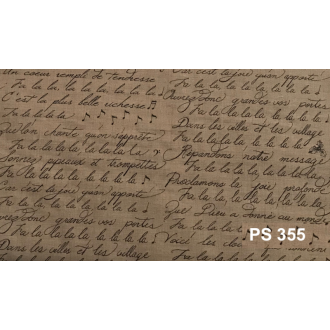 un coeur rempli de tendresse
Fa la la la la, la la la la
C'est la plus belle richesse
Fa la la la la
Qu'on chante quon s'apprête
Fa la la la la, la la la la
Sonnez pipeaux et trompettes
Fa la la la la, la la la la
Car c'est la joie quon apporte
Fa la la la la, la la la la
Ouvrez donc grandes vos portes
Fa la la la la, la la la la
Dans les villes et les village
Car c'est la joie quon apporte
Fa la la la la, la la la la
Ouvrez donc grandes vos portes
Fa la la la la, la la la la
Dans les villes et les village
Fa la la la la, la la la la
Repandons notre message
Fa la la la la, la la la la
Proclamons la joie profonde
Fa la la la la, la la la la
Que Dieu a donné au monde
Fa la la la la, la la la la
Voici les
PS 355